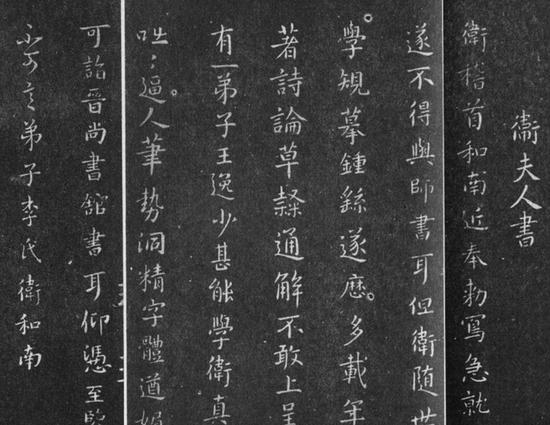 衞夫人書
衛稽首和南近奉勅寫急就
遂不得與師書耳但衛隨世
學規摹鍾繇遂歷多載年
著詩論草隸通解不敢上呈
有一弟子王逸少甚能學衛真
咄〻逼人筆勢洞精字體遒媚
可詣晉尚書舘書耳仰憑至鑒
弟子李氏衛和南